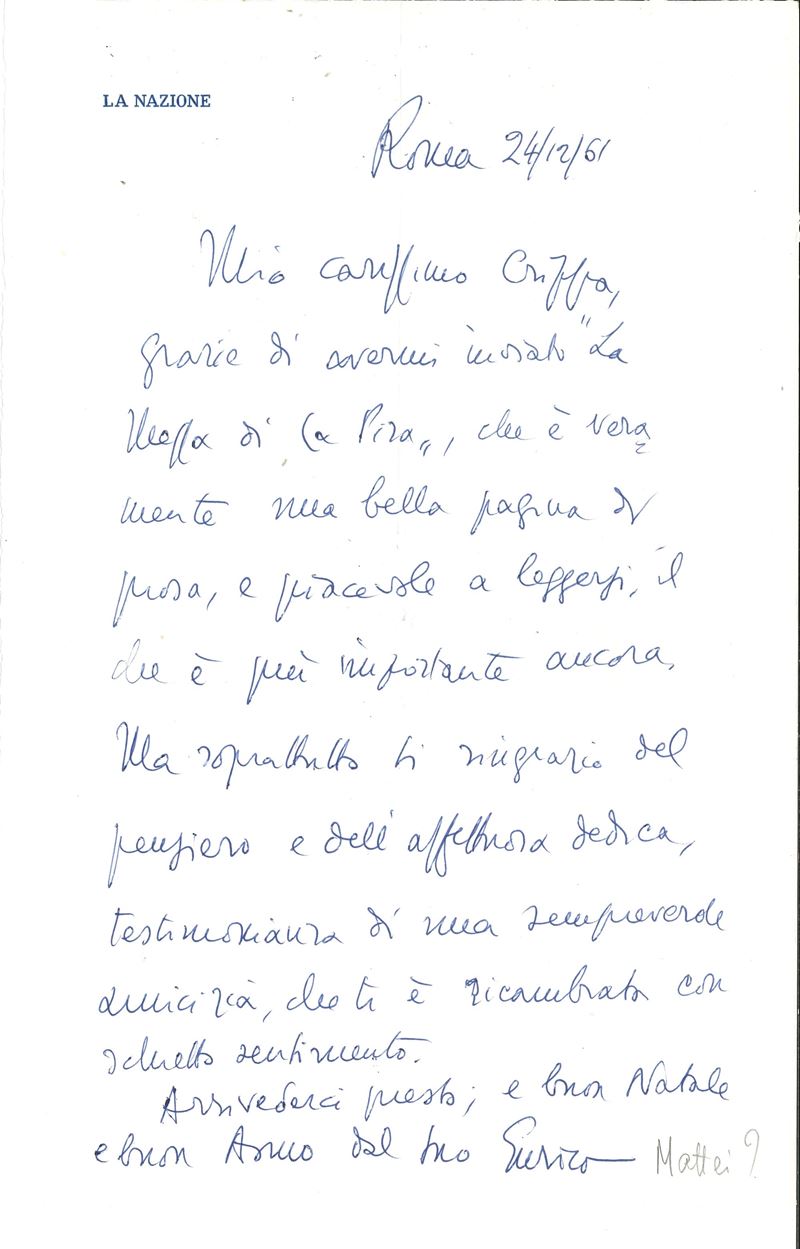 LA NAZIONE
Roma 24/12/61
Mio carissimo Crippa,
grazie di avermi inviato "La
Messa di La Pira„, che è vera=
mente una bella pagina di
prosa, e piacevole a leggersi, il
che è più importante ancora.
Ma soprattutto ti ringrazio del
pensiero e dell'affettuosa dedica,
testimonianza di una sempreverde
amicizia, che ti è ricambiata con
schietto sentimento.
Arrivederci presto; e buon Natale
e buon Anno dal tuo Enrico Mattei ?